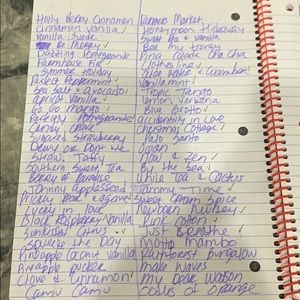 Holy Berry Cinnamon
Cinnamon Vanilla
Vanilla Suede
Be Cherry ✓
Dazzling Pomegranate
Farmhouse Fir
Summer Holiday
Pulled Peppermint
Sea Salt & Avocado
Apricot Vanilla ✓
Go Go Mango
Perfectly Pomegranate
Candy Crave
Sugared Strawberry
Dew or Don't We
Straw. Taffy
Southern Sweet Tea
Berry of Paradise
Johnny Appleseed
Prickly Pear & Agave
Lucky in Love
Black Raspberry Vanilla
Sunkissed Citrus
Squeeze the Day
Pineapple Coconut Vanilla
Pineapple Pucker
Clove & Cinnamon ✓
Camu Camu
Farmers Market
Honeymoon Hideaway
Sweet Pea & Vanilla
Bee My Honey
Pina Colada Cha Cha
Clothesline
Aloe Water & Cucumber
Vanillamint ✓
Tropic Tango
Lemon Verbena
Blue Grotto
Accidentally in Love
Christmas Cottage ✓
Palo Santo
Now & Zen ✓
By the Sea ✓
White Tea & Cactus
Jammy Time ✓
Sweet Cream Spice
Newborn Nursery
Luna Cotton
Just Breathe ✓
Mojito Mambo
Rainforest Bungalow
Make Waves
My Dear Watson
Oodles of Orange